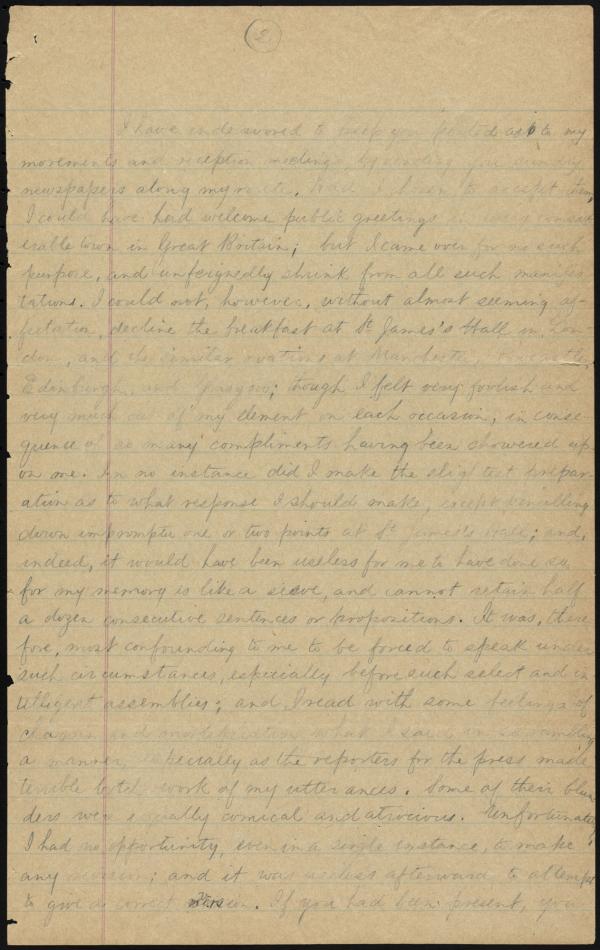 (2)
I have endeavored to keep you posted as to my
movements and reception meetings, by sending you sundry
newspapers along my route. Had I chosen to accept them,
I could have had welcome public greetings in every consid-
erable town in Great Britain; but I came over for no such
purpose, and unfeignedly shrink from all such manifes-
tations. I could not, however, without almost seeming af-
fectation, decline the breakfast at St. James's Hall in Lon-
don, and the similar ovations at Manchester, Newcastle,
Edinburgh, and Glasgow; though I felt very foolish and
very much out of my element on each occasion, in conse-
quence of so many compliments having been showered up-
on me. In no instance did I make the slightest prepar-
ation as to what response I should make, except pencilling
down impromptu one or two points at St. James's Hall; and,
indeed, it would have been useless for me to have done so,
for my memory is like a sieve, and cannot retain half
a dozen consecutive sentences or propositions. It was, there-
fore, most confounding to me to be forced to speak under
such circumstances, especially before such select and in-
telligent assemblies; and I read with some feelings of
chagrin and mortification what I said in so rambling
a manner, especially as the reporters for the press made
terrible botch work of my utterances. Some of their blun-
ders were equally comical and atrocious. Unfortunately,
I had no opportunity, even in a single instance, to make
any revision; and it was useless afterward to attempt
to give a correct version. If you had been present, you